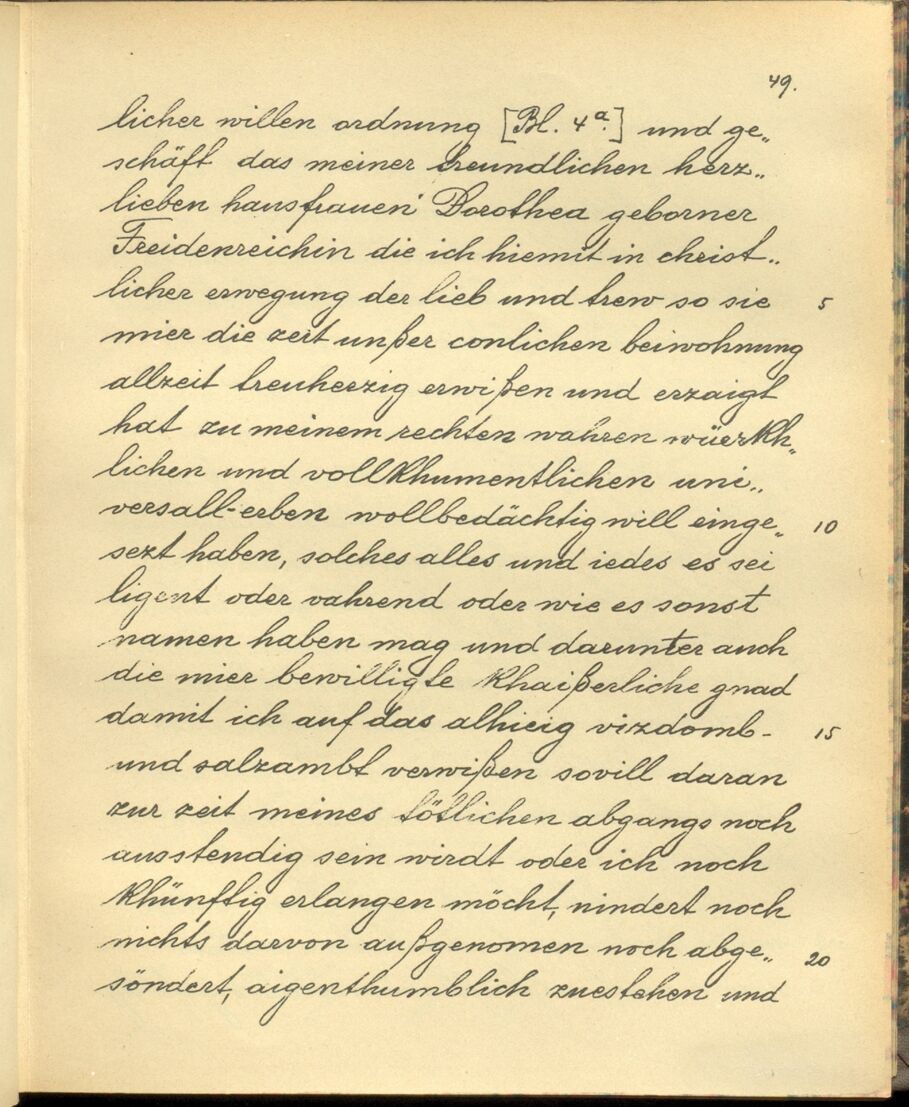 49.
licher willen ordnung [Bl. 4a.] und ge„
schäft das meiner freundlichen herz„
lieben hausfrauen Dorothea geborner
Freidenreichin die ich hiemit in christ„
licher erwegung der lieb und trew so sie 5
mier die zeit unßer conlichen beiwohnung
allzeit treuherzig erwißen und erzaigt
hat zu meinem rechten wahren wüerkh„
lichen und vollkhumentlichen uni„
versall-erben wollbedächtig will einge„ 10
sezt haben, solches alles und iedes es sei
ligent oder vahrend oder wie es sonst
namen haben mag und darunter auch
die mier bewilligte khaißerliche gnad
damit ich auf das alhieig vizdomb-  15
und salzambt verwißen sovill daran
zur zeit meines tötlichen abgangs noch
ausstendig sein wirdt oder ich noch
khünfftig erlangen möcht, nindert noch
nichts darvon außgenomen noch abge„ 20
söndert, aigenthumblich zuestehen und